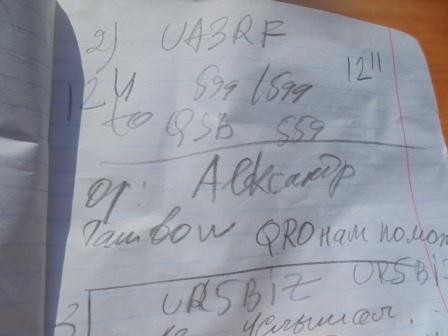 2) UA3RF
12ч 599/599 12"
to QSB 559
op: Александр
Tambow QRO нам помог
3 UR5BIZ UR5BIZ
Услышал.